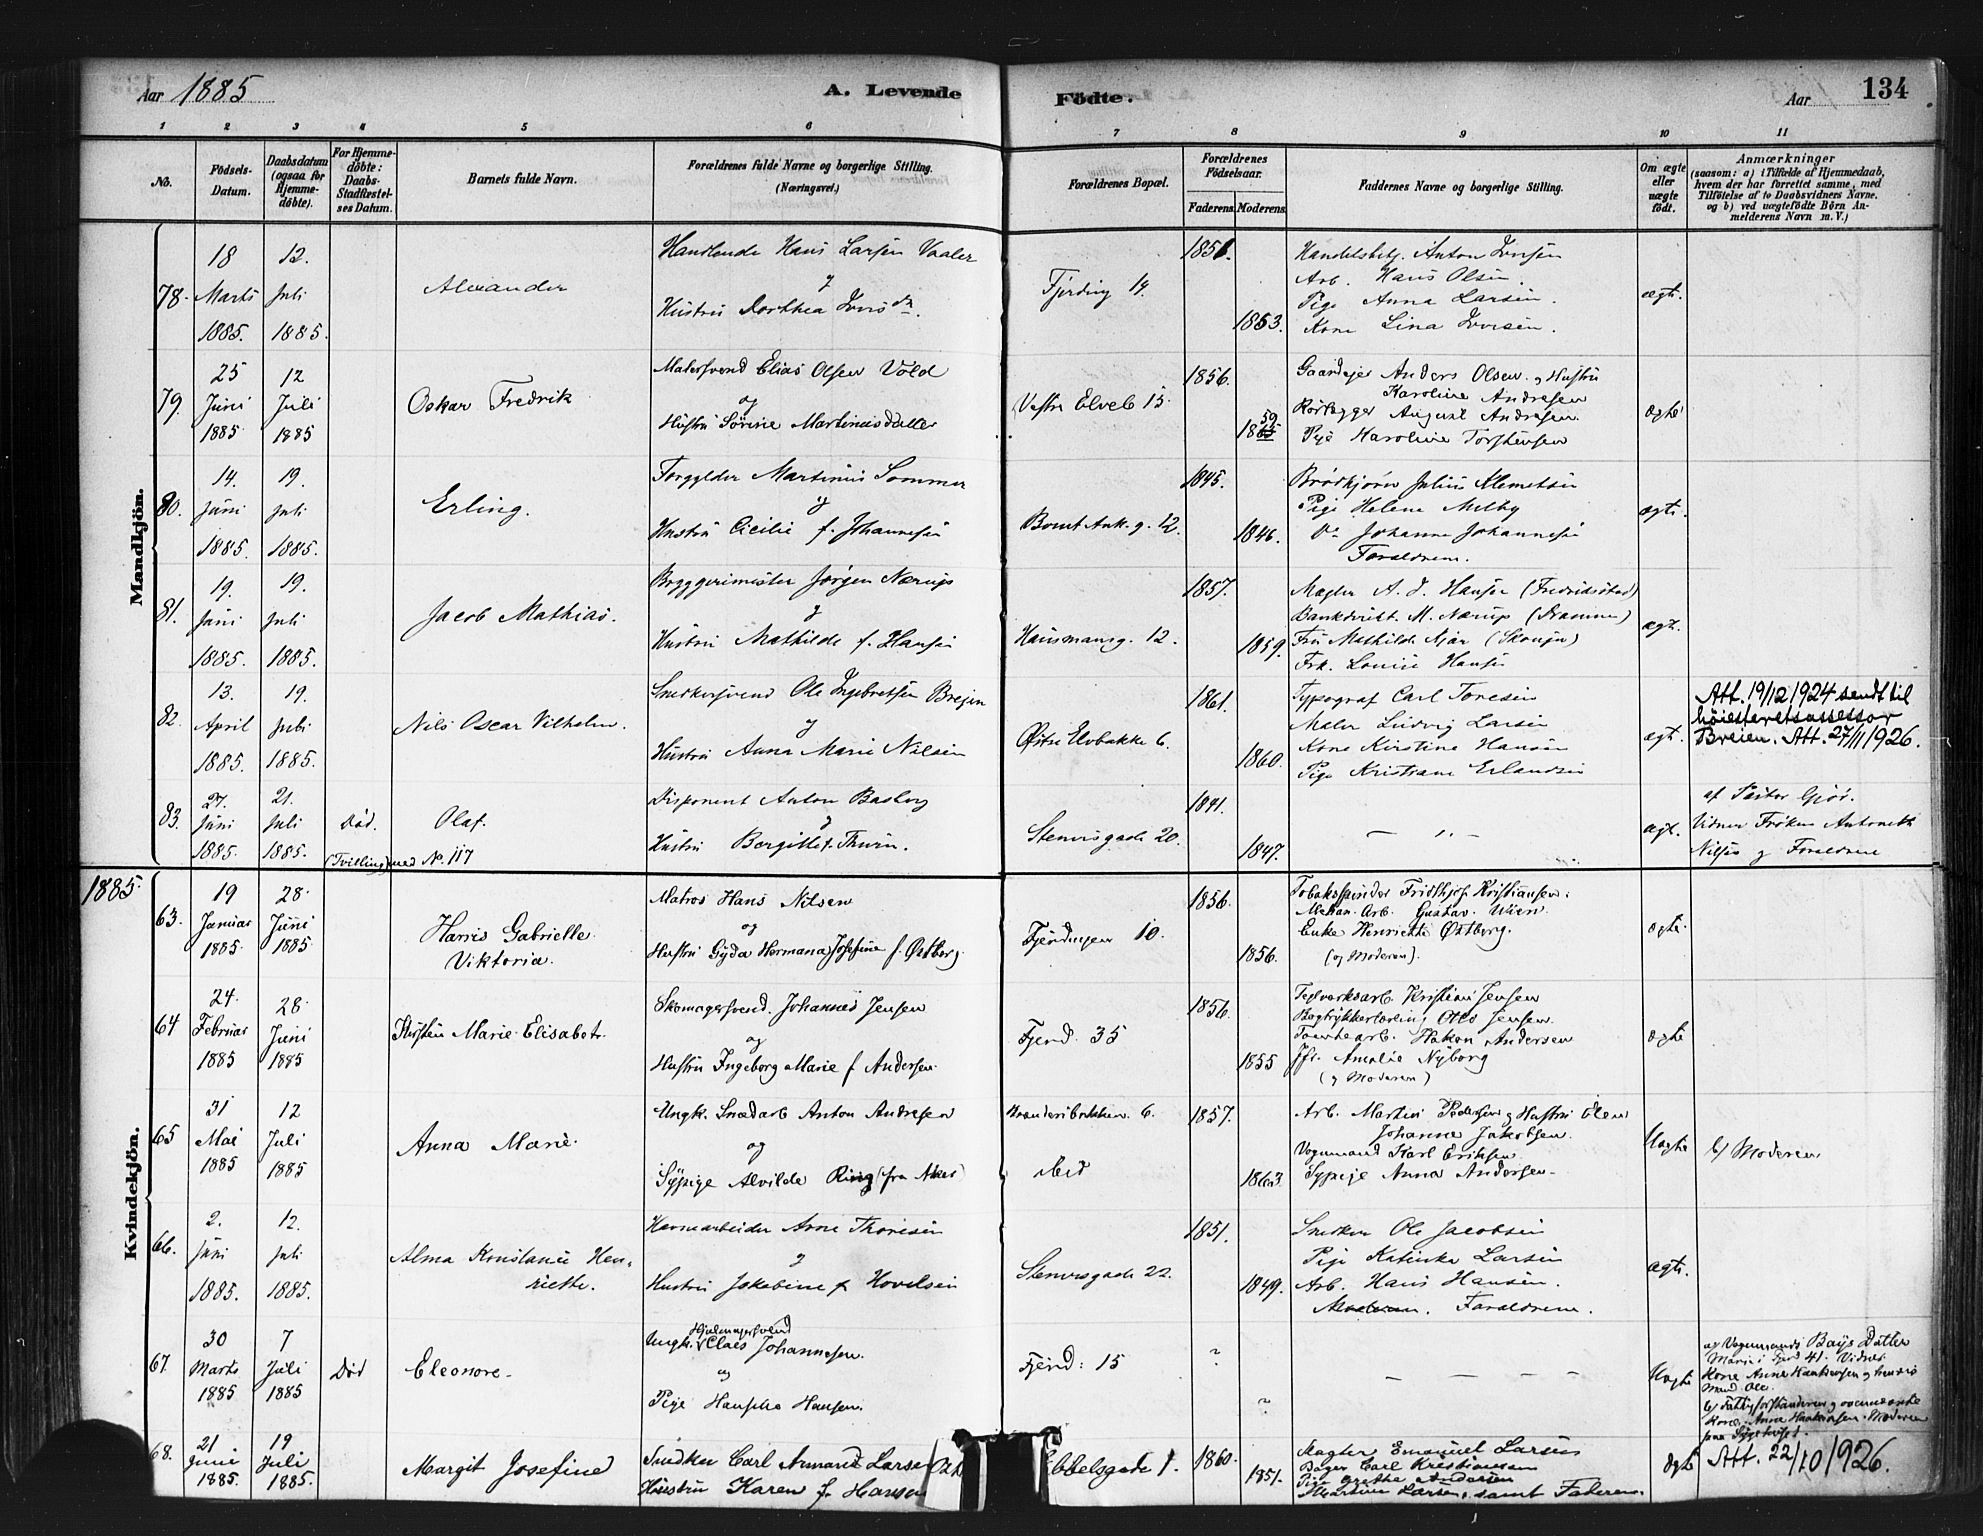 Aar 1885
A. Levende
Födte.
Aar
134
1 2 3 4 5 6 7 8 9 10 11
No.
Födsels-Datum.
Daabsdatum (ogsaa for Hjemme-döbte).
For Hjemme-döbte: Daabs-Stadfæstel-ses Datum.
Barnets fulde Navn.
Forældrenes fulde Navne og borgerlige Stilling. (Næringsvei.)
Forældrenes Bopæl.
Forældrenes Födselsaar.
Faderens. Moderens.
Faddernes Navne og borgerlige Stilling.
Om ægte eller uægte födt.
Anmærkninger
(saasom: a) i Tilfælde af Hjemmedaab, hvem der har forrettet samme, med Tilföielse af to Daabsvidners Navne, og b) ved uægtefödte Börn An-melderens Navn m. V.)
Mandkjön.
78. 18 Marts 1885. 12. Juli 1885.
Alexander
Handlende Hans Larsen Vaaler
&
Hustru Dorthea Ivers dr.
Fjerding 14.
1851. 1853.
Handelsbetj. Anton Iversen
Arb. Hans Olsen.
Pige Anna Larsen.
Kone Lina Iversen.
ægte.
79. 25 Juni 1885 12 Juli 1885
Oskar Fredrik
Malersvend Elias Olsen Vold
og
Hustru Sörine Martinusdatter
Vestre Elveb 15.
1856. 1859
Gaardejer Anders Olsen og Hustru
Karoline Andresen
Rörlægger August Andresen.
Pige Karoline Torstensen
ægte
80. 14. Juni 1885. 19. Juli 1885.
Erling.
Forgylder Martinus Sommer
&
Hustru Cicilie f. Johannesen
Bernt Ank. g. 12.
1845. 1846.
Brödkjörer Julius Klemetsen
Pige Helene Melby
Do Johanne Johannesen
Forældrene.
ægte.
81. 19. Juni 1885. 19. Juli 1885.
Jacob Mathias.
Bryggerimester Jörgen Nærup
&
Hustru Mathilde f. Hansen
Hausmansg. 12.
1857. 1859.
Mægler A. J. Hansen (Fredriksstad)
Bankdirekt. M. Nærup (Drammen)
Fru Mathilde Ajar (Skonjen)
Frk. Louise Hansen
ægt.
82. 13. April 1885. 19. Juli 1885.
Nils Oscar Vilhelm.
Snedkersvend Ole Ingebretsen Breien
&
Hustru Anna Marie Nilsen
Østre Elvbakke 6.
1861. 1860.
Typograf Carl Toresen
Maler Ludvig Larsen
Kone Kirstine Hansen
Pige Kristiane Erlandsen
ægt.
Att. 19/12 1924 sendt til
höiesteretsassessor
Breien. Att. 27/11 1926.
83. 27. Juni 1885. 21. Juli 1885. Död.
Olaf.
(Tvilling med No. 117
Disponent Anton Basberg
&
Hustru Bergitte f. Thurn.
Stenersgade 20.
1841. 1847.
— „ —
ægt.
af Pastor Gjör.
Vidner Fröken Antonette
Nilsen og Forældrene
1885.
Kvindekjön.
63. 19 Januar 1885 28. Juni 1885
Harris Gabrielle
Viktoria.
Matros Hans Nilsen
og
Hustru Gyda Hermana Josefine f. Østberg.
Fjerdingen 10.
1856. 1856.
Tobaksspinder Fridthjof Kristiansen.
Mekan. Arb. Gustav Wien.
Enke Henriette Østberg.
(og Moderen).
ægte.
64 24. Februar 1885 28. Juni 1885
Kirsten Marie Elisabet.
Skomagersvend. Johannes Jensen
og
Hustru Ingeborg Marie f Andersen.
Fjerd. 35
1856. 1855
Teglverksarb. Kristian Jensen
Bogtrykkerlærling Otto Jensen.
Tomtearb. Hakon Andersen
Jfr. Amalie Nyborg
(og Moderen)
ægte
65 31 Mai 1885 12 Juli 1885
Anna Marie.
Ungk. Snedarb Anton Andresen
og
Sypige Alvilde Ring (fra Aker)
Brænderibakken. 6.
ibid
1857. 1863.
Arb. Martin Pedersen og Hustru Elen
Johanne Jakobsen.
Vognmand Karl Eriksen
Sypige Anna Andersen.
Uægte
b/ Moderen
66. 2. Juni 1885. 12. Juli 1885.
Alma Konstance Hen-
riette.
Havnearbeider Arne Thoresen
&
Hustru Jakobine f. Hovelsen
Stenersgade 22.
1851. 1849.
Snedker Ole Jacobsen
Pige Katinka Larsen
Arb. Hans Hansen.
Moderen. Forældrene.
ægte.
67. 30 Marts 1885 7 Juli 1885 Död
Eleonore.
Hjulmagersvend
Ungk. Claes Johannesen.
og
Pige Hansine Hansen.
Fjerd: 15
? ?
— — — —
Uægte
a/ Vognmand Bays Datter
Marie i Fjerd 41. Vidner
Kone Anne Haakensen og hendes
Mand Ole.
b/ Fattigforstanderen og ovennævnte
Kone Anne Haakensen. Moderen
paa Sygehuset.
68. 21 Juni 1885. 19 Juli 1885.
Margit Josefine
Snedker Carl Armand Larsen
Hustru Karen f. Hansen
Ebbelsgade 1.
1860. 1851.
Mægler Emanuel Larsen
Bager Carl Kristiansen
Pige Grethe Andersen
Martin Larsen, samt Faderen.
ægte
Att. 22/10 1926.